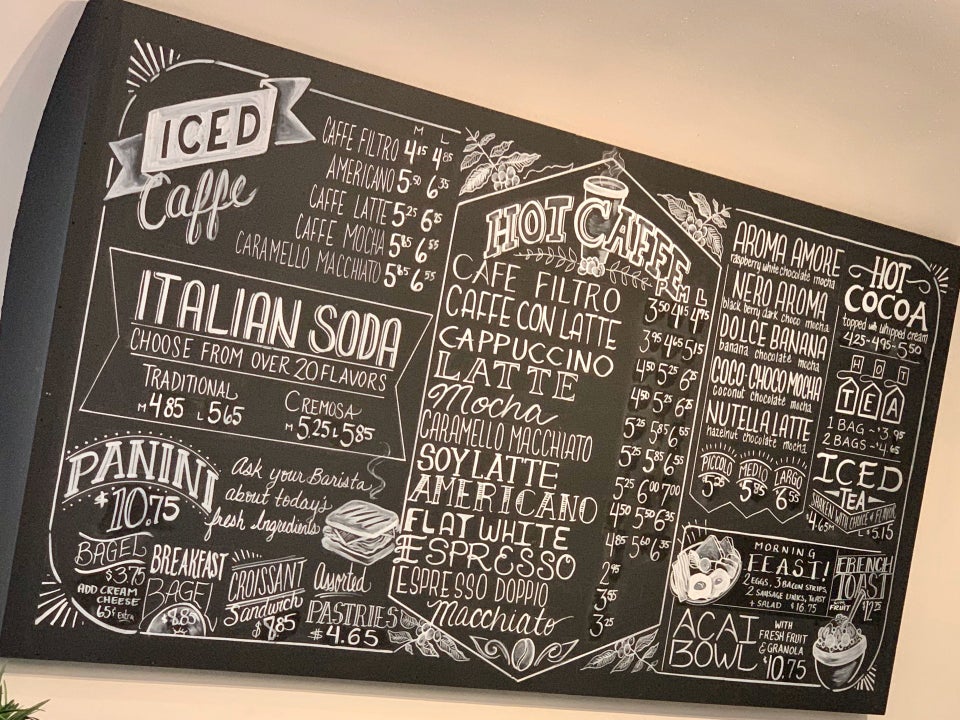 ICED
Caffe
M L
CAFFE FILTRO 4 15 4 85
AMERICANO 5 50 6 35
CAFFE LATTE 5 25 6 25
CAFFE MOCHA 5 85 6 55
CARAMELLO MACCHIATO 5 85 6 55
ITALIAN SODA
CHOOSE FROM OVER 20 FLAVORS
TRADITIONAL
M 4.85 L 5.65
CREMOSA
M 5.25 L 5.85
PANINI
$10.75
Ask your Barista
about today's
fresh Ingredients
BAGEL
$3.75
ADD CREAM
CHEESE
65¢ Extra
BREAKFAST
BAGEL
$8.85
CROISSANT
Sandwich
$7.85
Assorted
PASTRIES
$4.65
HOT CAFFE
P M L
CAFE FILTRO 3 50 4 15 4 75
CAFFE CON LATTE 3 95 4 65 5 15
CAPPUCCINO 4 50 5 25 6 25
LATTE 4 50 5 25 6 25
Mocha 5 25 5 85 6 55
CARAMELLO MACCHIATO 5 25 5 85 6 55
SOY LATTE 5 25 6 00 7 00
AMERICANO 4 50 5 50 6 35
FLAT WHITE 4 85 5 60 6 35
ESPRESSO 2 95
ESPRESSO DOPPIO 3 55
Macchiato 3 25
AROMA AMORE
raspberry white chocolate mocha
NERO AROMA
black berry dark choco mocha
DOLCE BANANA
banana chocolate mocha
COCO-CHOCO MOCHA
coconut chocolate mocha
NUTELLA LATTE
hazelnut chocolate mocha
PICCOLO
5 25
MEDIO
5 85
LARGO
6 55
HOT
COCOA
topped with whipped cream
4.25-4.95-5.50
HOT
TEA
1 BAG ~ $3.95
2 BAGS ~ $4.65
ICED
TEA
SHAKEN WITH CHOICE of FLAVOR
$4.65 M L $5.15
MORNING
FEAST!
2 EGGS, 3 BACON STRIPS,
2 SAUSAGE LINKS, TOAST
+ SALAD $16.75
FRENCH
TOAST
FRUIT
ACAI
BOWL
WITH
FRESH FRUIT
& GRANOLA
$10.75